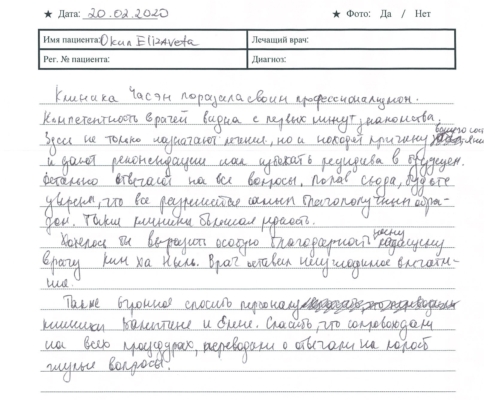 ★ Дата: 20.02.2020 ★ Фото: Да / Нет
Имя пациента: Окин Elizaveta Лечащий врач:
Рег. № пациента: Диагноз:
Клиника Часэн поразила своим профессионализмом.
Компетентность врачей видна с первых минут знакомства.
Здесь не только назначают лечение, но и находят причину вашего состояния
и дают рекомендации как избежать рецидива в будущем.
Детально отвечают на все вопросы. Попав сюда, будете
уверены, что все разрешится самым благополучным обра-
зом. Такие клиники большая редкость.
Хотелось бы выразить особую благодарность моему лечащему
врачу Ким Ха Ныль. Врач оставил неизгладимое впечатле-
ние.
Также огромное спасибо персоналу
клиники Валентине и Елене. Спасибо, что сопровождали
на всех процедурах, переводили и отвечали на порой
глупые вопросы.